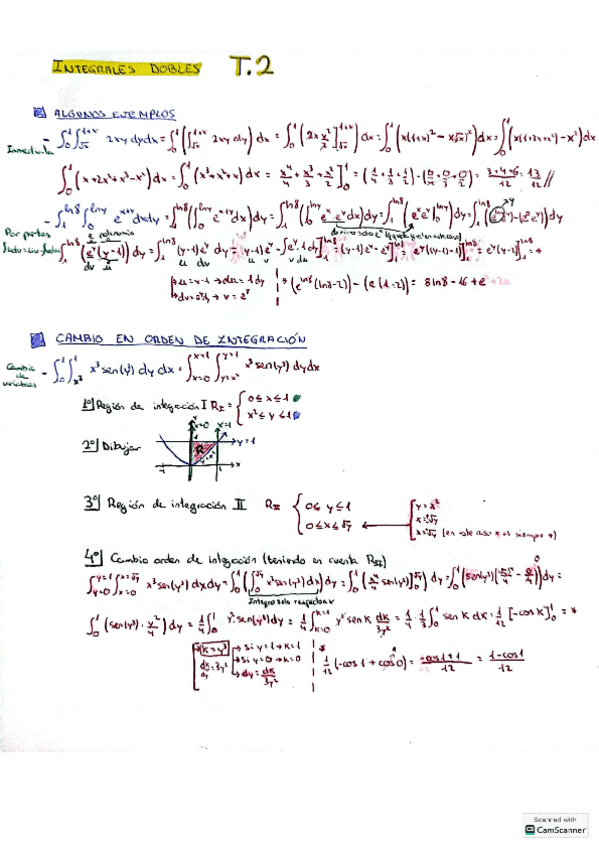 INTEGRALES DOBLES T.2
ALGUNOS EJEMPLOS
Inmediata - ∫₀¹∫_{√x}^{1+x} 2xy dydx = ∫₀¹(∫_{√x}^{1+x} 2xy dy) dx = ∫₀¹(2x y²/2]_{√x}^{1+x} dx = ∫₀¹(x(1+x)² - x(√x)²)dx = ∫₀¹(x(1+2x+x²) - x²)dx
∫₀¹(x+2x²+x³-x²)dx = ∫₀¹(x³+x²+x)dx = x⁴/4 + x³/3 + x²/2]₀¹ = (1/4+1/3+1/2) - (0/4+0/3+0/2) = 3+4+6/12 = 13/12 //
- ∫₁^{ln8}∫₀^{lny} e^{x+y} dxdy = ∫₁^{ln8}(∫₀^{lny} e^{x+y} dx)dy = ∫₁^{ln8}(∫₀^{lny} e^x·e^y dx)dy = ∫₁^{ln8}(e^y e^x]₀^{lny})dy
Por partes
∫₁^{ln8}(e^y(y-1)) dy = ∫₁^{ln8}(y-1)e^y dy = (y-1)e^y - ∫e^y·1dy]₁^{ln8} = (y-1)e^y - e^y]₁^{ln8} = e^y((y-1)-1)]₁^{ln8} = e^y(y-2)]₁^{ln8} = *
u = y-1 → du = 1dy
dv = e^y → v = e^y
* (e^{ln8}(ln8-2)) - (e(1-2)) = 8ln8 - 16 + e
CAMBIO EN ORDEN DE INTEGRACIÓN
Cambio de variables - ∫₀¹∫_{x²}¹ x³sen(y³) dy dx = ∫_{x=0}^{x=1}∫_{y=x²}^{y=1} x³sen(y³)dydx
1º Región de integración I R_I = { 0≤x≤1
x²≤y≤1
2º Dibujar
x=0 x=1
y=1
R
-1 1 x
3º Región de integración II R_II { 0≤y≤1
0≤x≤√y
y=x²
x=√y
x=√y (en este caso x es siempre +)
4º Cambio orden de integración (teniendo en cuenta R_II)
∫_{y=0}^{y=1}∫_{x=0}^{x=√y} x³sen(y³)dxdy = ∫₀¹(∫₀^{√y} x³sen(y³)dx)dy = ∫₀¹(x⁴/4 sen(y³)]₀^{√y}) dy = ∫₀¹(sen(y³)((√y)⁴/4 - 0/4))dy =
Integro solo respecto a x
∫₀¹(sen(y³)·y²/4)dy = 1/4∫₀¹ y²·sen(y³)dy = 1/4∫_{k=0}^{k=1} y² sen k dk/3y² = 1/4·1/3∫₀¹ sen k dk = 1/12[-cos k]₀¹ = *
k=y³ → Si y=1 → k=1
dk/dy = 3y² → Si y=0 → k=0
→ dy = dk/3y²
* 1/12(-cos1+cos0) = -cos1+1/12 = 1-cos1/12
Scanned with
CamScanner